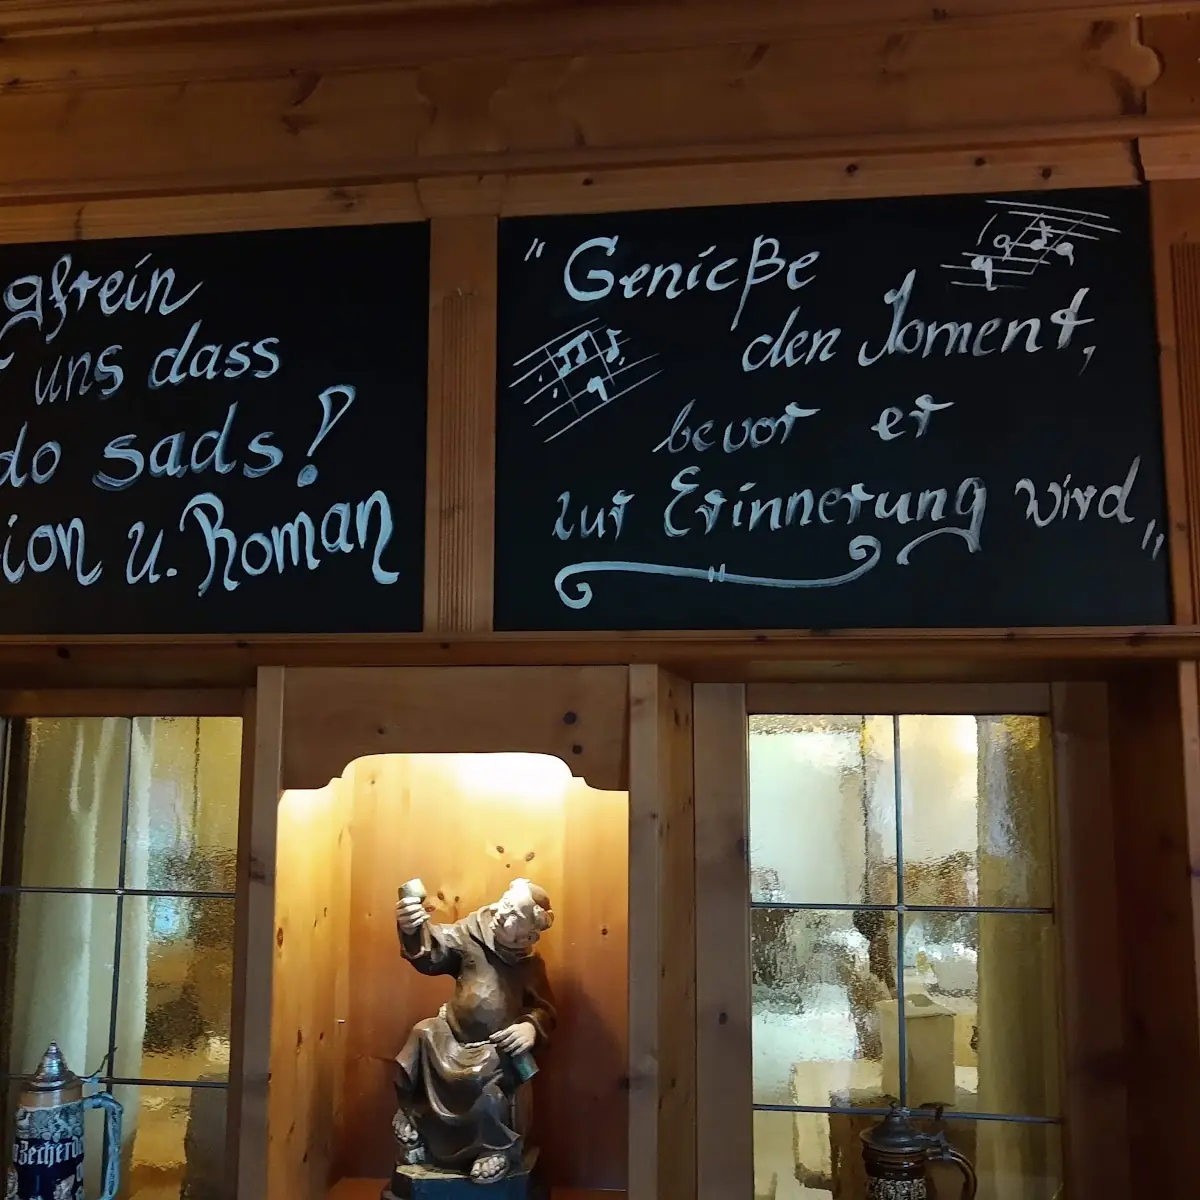 gfrein
uns dass
do sads!
ion u. Roman
"Genieße
den Moment,
bevor er
zur Erinnerung wird,"
Zecher